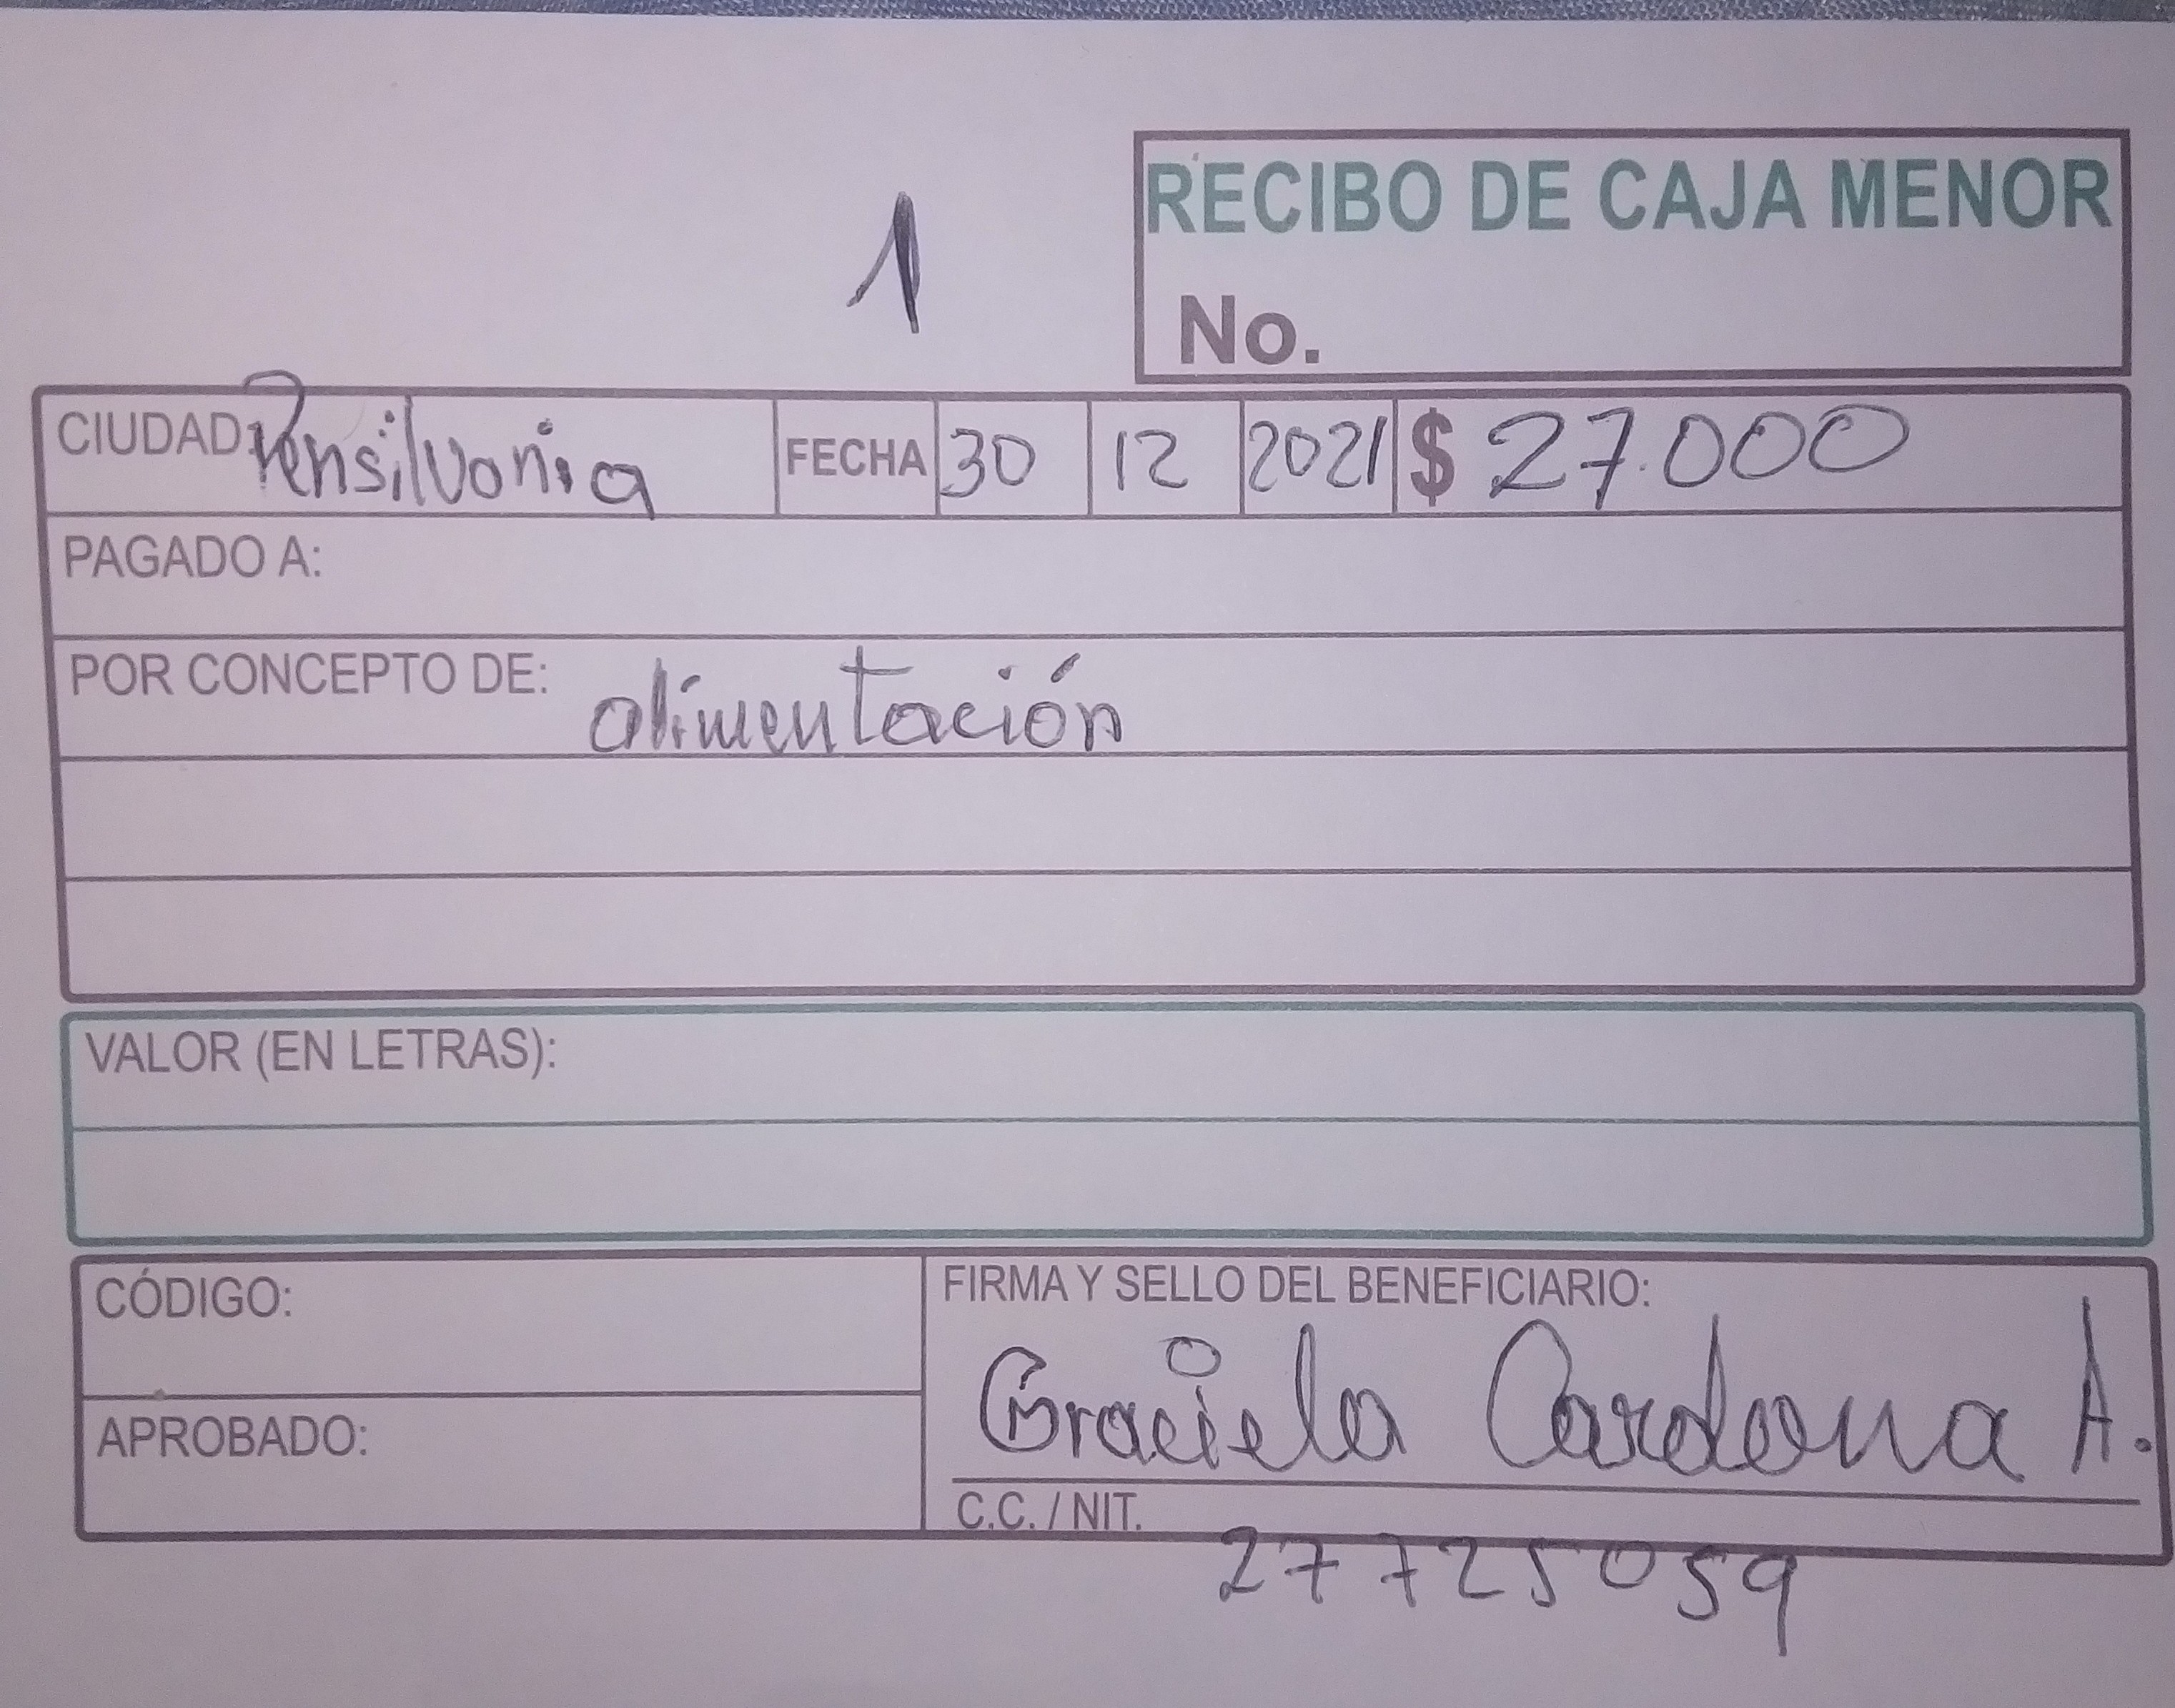 RECIBO DE CAJA MENOR
1
No.
CIUDAD: Pensilvania FECHA 30 12 2021 $ 27.000
PAGADO A:
POR CONCEPTO DE: alimentación
VALOR (EN LETRAS):
CÓDIGO:
FIRMA Y SELLO DEL BENEFICIARIO:
Graciela Cardona A.
APROBADO:
C.C. / NIT.
27725059